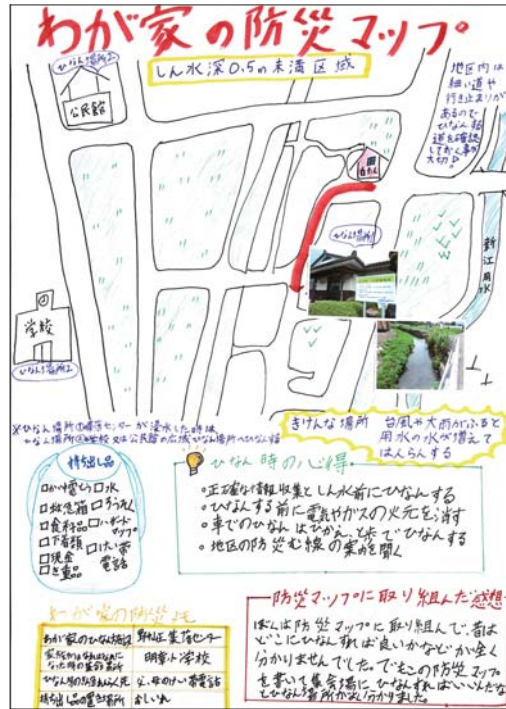 わが家の防災マップ
ひなん場所2
しん水深0.5m未満区域
公民館
地区内は
細い道や
行き止まりが
あるので
ひなん経
道を確認
しておく事が
大切
わが家
新江用水
ひなん場所1
学校
ひなん場所2
※ひなん場所①集落センターが浸水した時は、
ひなん場所②学校又は公民館の広域ひなん場所へひなんする
きけんな場所 台風や大雨がふると
用水の水が増えて
はんらんする
持ち出し品
□かい中電とう □水
□救急箱 □ろうそく
□食料品 □ハザードマップ
□下着類
□現金 □けい帯電話
□き重品
ひなん時の心得
・正確な情報収集としん水前にひなんする
・ひなんする前に電気やガスの火元を消す
・車でのひなんはひかえ、と歩でひなんする
・地区の防災む線の案内を聞く
わが家の防災メモ
わが家のひなん場所 集落センター
家族がはなればなれに
なった時の集合場所 明章小学校
ひなん時の緊急れんらく先 父、母のけい帯電話
持ち出し品の置き場所 おしいれ
防災マップに取り組んだ感想
ぼくは防災マップに取り組んで、昔は
どこにひなんすれば良いかなどが全く
分かりませんでした。でもこの防災マップ
を書いて集会場にひなんすればいいんだな
とひなん場所がよく分かりました。